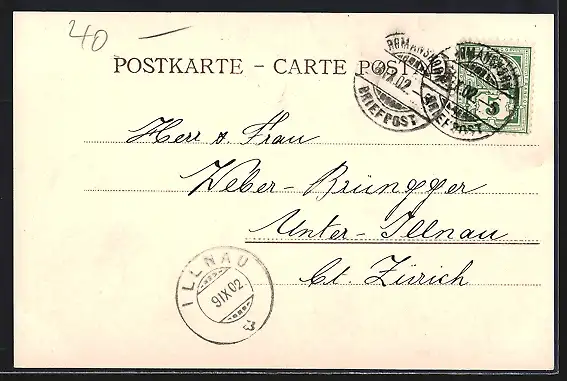 40 –
POSTKARTE – CARTE POSTALE
ROMANSHORN
9 IX 02
BRIEFPOST
ROMANSHORN
IX 02
BRIEFPOST
5
Herr & Frau
Weber-Brüngger
Unter-Illnau
Ct. Zürich
ILLNAU
9 IX 02